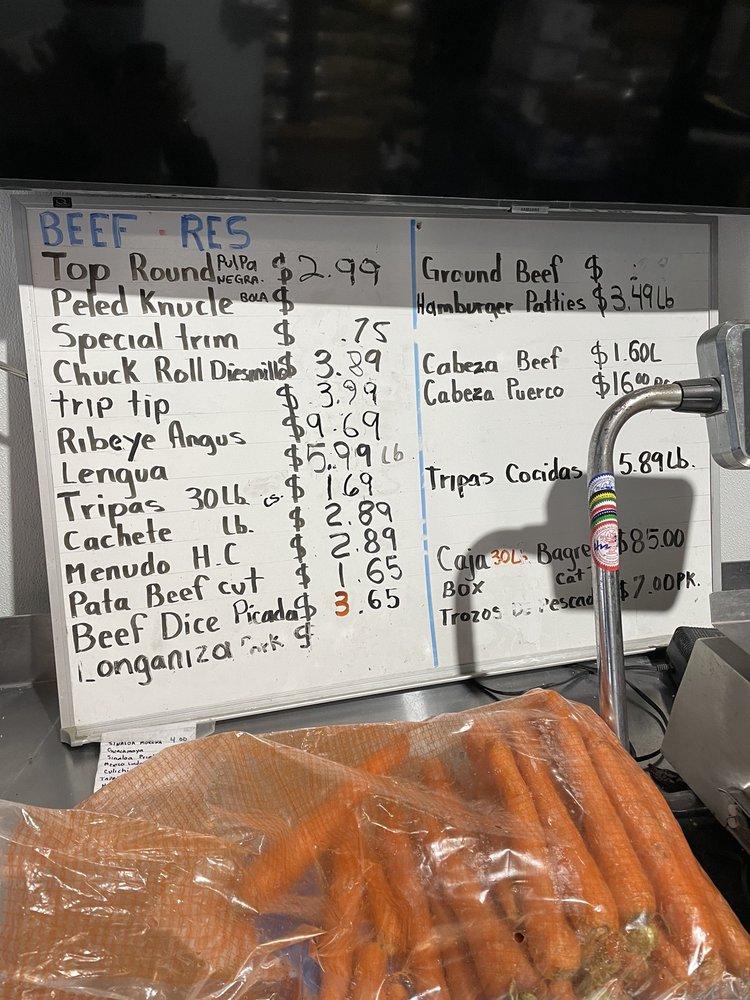 BEEF . RES
Top Round PulPa NEGRA. $2.99
Peled Knucle BOLA $
Special trim $ .75
Chuck Roll Diesmillo $ 3.89
trip tip $ 3.99
Ribeye Angus $9.69
Lengua $5.99 lb
Tripas 30Lb cs. $ 169
Cachete lb. $ 2.89
Menudo H.C $ 2.89
Pata Beef cut $ 1.65
Beef Dice Picada $ 3.65
Longaniza $
Ground Beef $
Hamburger Patties $3.49 Lb
Cabeza Beef $1.60L
Cabeza Puerco $16.00
Tripas Cocidas 5.89 Lb.
Caja 30Lb Bagre $85.00
BOX cat
Trozos De Pescado $7.00 PK.
SAMSUNG
4.00